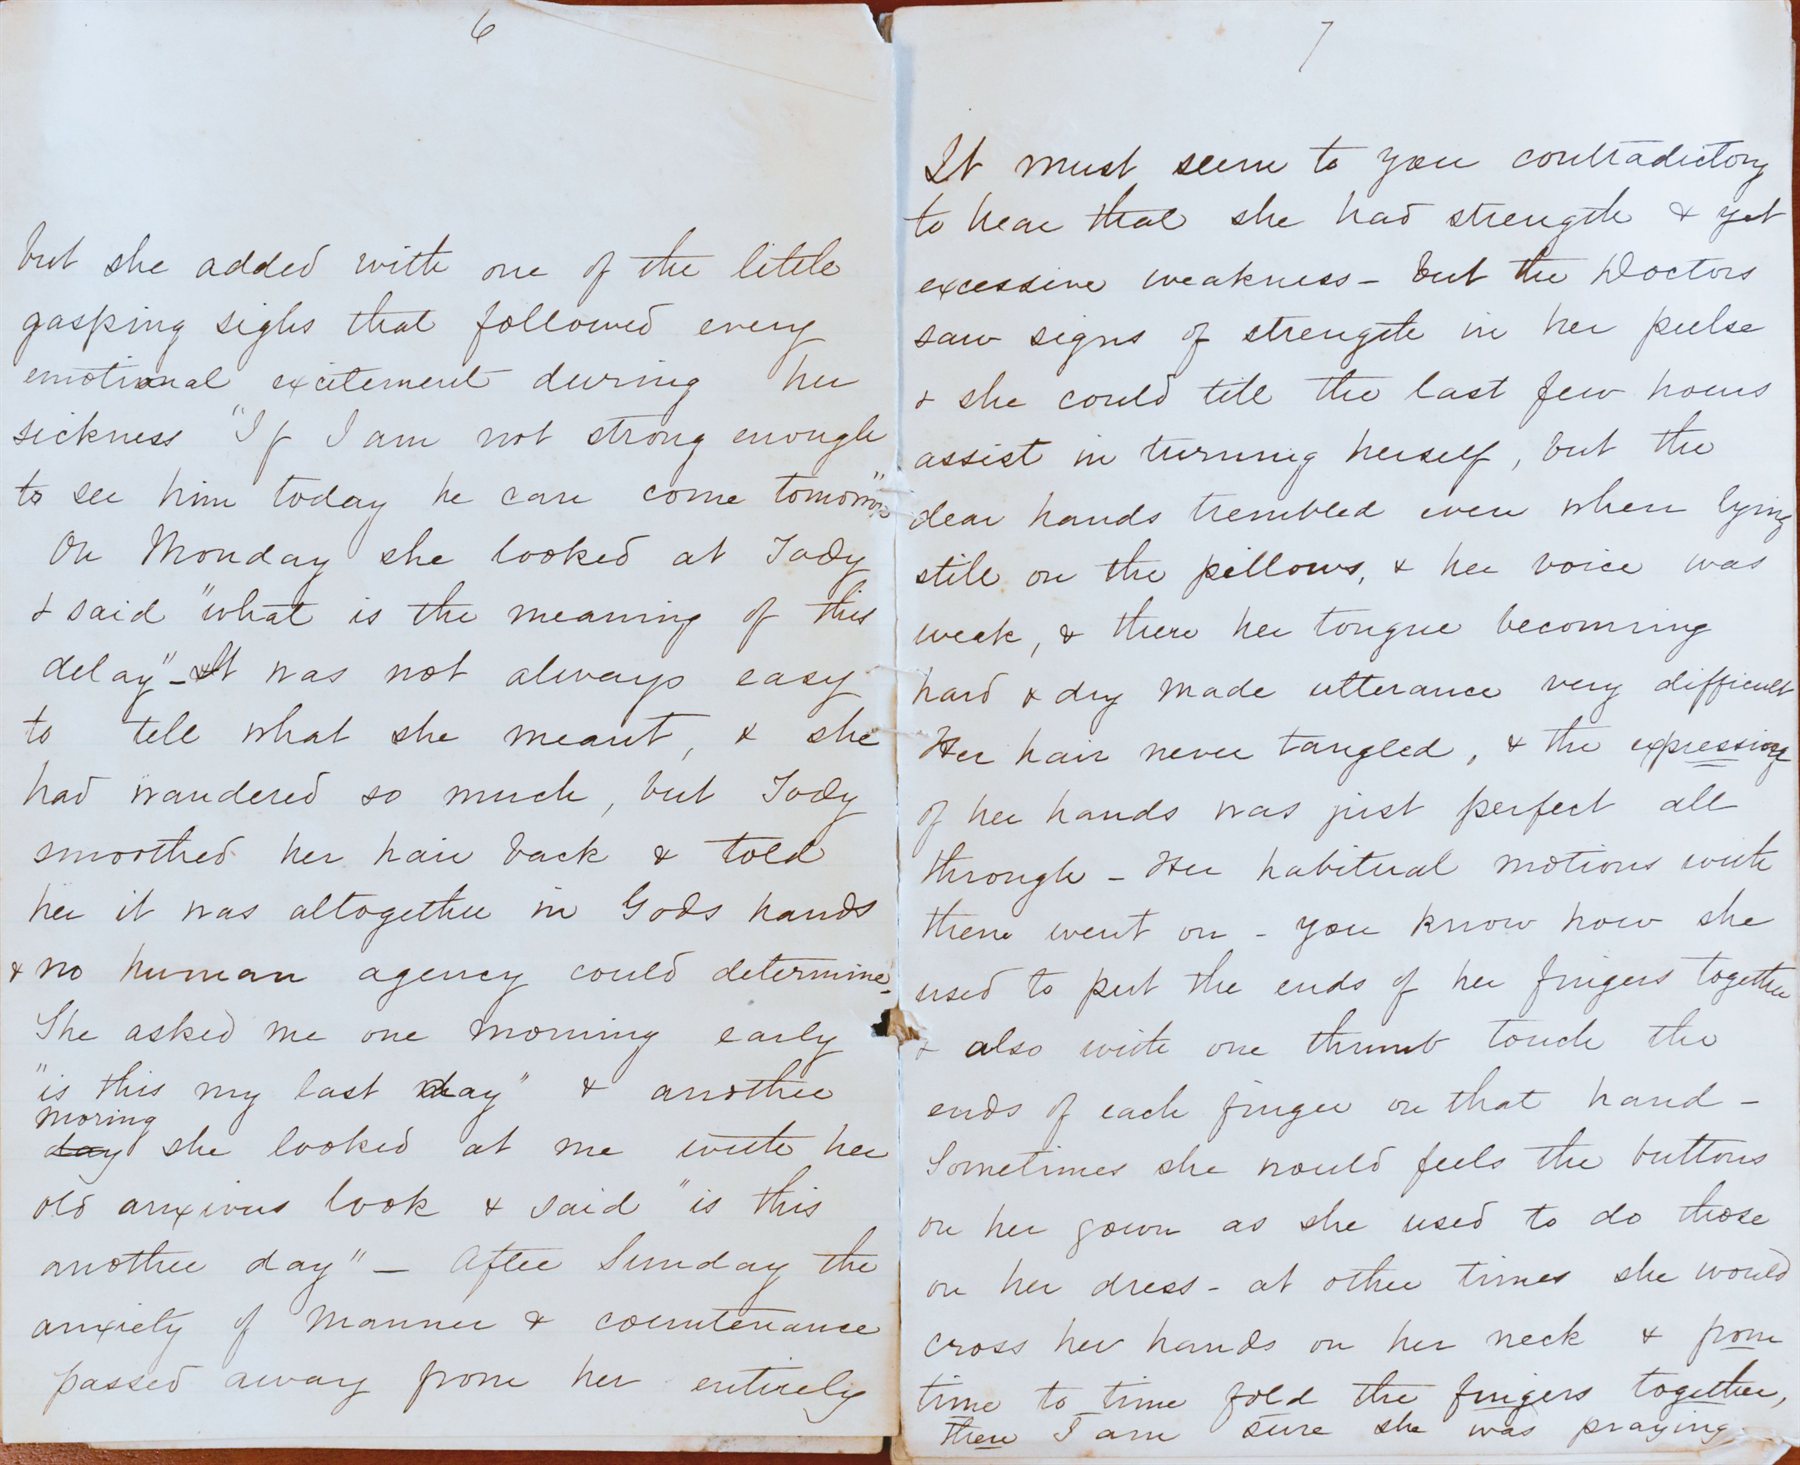 6
but she added with one of the little
gasping sighs that followed every
emotional excitement during her
sickness "If I am not strong enough
to see him today he can come tomorrow"
On Monday she looked at Tody
& said "what is the meaning of this
delay" - It was not always easy
to tell what she meant, & she
had wandered so much, but Tody
smoothed her hair back & told
her it was altogether in Gods hands
& no human agency could determine -
She asked me one morning early
"is this my last day" & another
moring
day she looked at me with her
old anxious look & said "is this
another day" - After Sunday the
anxiety of manner & countenance
passed away from her entirely
7
It must seem to you contradictory
to hear that she had strength & yet
excessive weakness - but the Doctors
saw signs of strength in her pulse
& she could till the last few hours
assist in turning herself, but the
dear hands trembled even when lying
still on the pillows, & her voice was
weak, & there her tongue becoming
hard & dry made utterance very difficult
Her hair never tangled, & the expression
of her hands was just perfect all
through - Her habitual motions with
them went on - you know how she
used to put the ends of her fingers together
& also with one thumb touch the
ends of each finger on that hand -
Sometimes she would feels the buttons
on her gown as she used to do those
on her dress - at other times she would
cross her hands on her neck & from
time to time fold the fingers together,
then I am sure she was praying